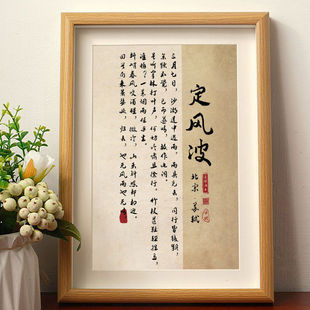 定风波
北宋·苏轼
三月七日,沙湖道中遇雨,雨具先去,同行皆狼狈,
余独不觉,已而遂晴,故作此词。
莫听穿林打叶声,何妨吟啸且徐行。竹杖芒鞋轻胜马,
谁怕?一蓑烟雨任平生。
料峭春风吹酒醒,微冷,山头斜照却相迎。
回首向来萧瑟处,归去,也无风雨也无晴。